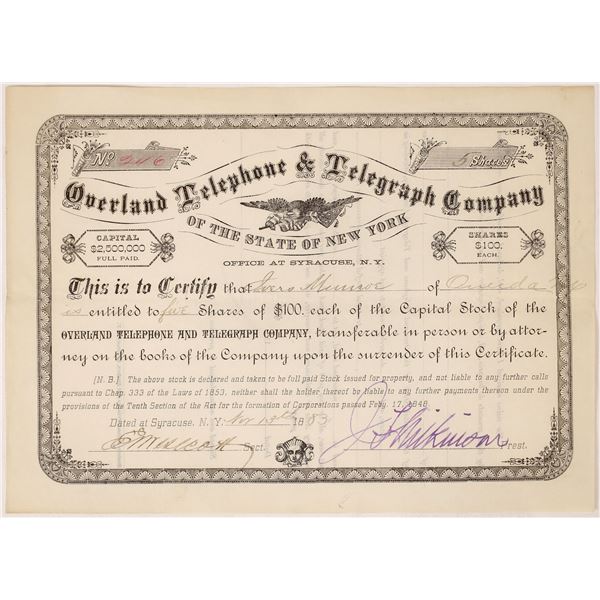 No 246
5 Shares
Overland Telephone & Telegraph Company
OF THE STATE OF NEW YORK
CAPITAL
$2,500,000
FULL PAID.
SHARES
$100,
EACH.
OFFICE AT SYRACUSE, N.Y.
This is to Certify that Munroe of Oneida N.Y.
is entitled to five Shares of $100. each of the Capital Stock of the
OVERLAND TELEPHONE AND TELEGRAPH COMPANY, transferable in person or by attor-
ney on the books of the Company upon the surrender of this Certificate.
[N. B.] The above stock is declared and taken to be full paid Stock issued for property, and not liable to any further calls
pursuant to Chap. 333 of the Laws of 1853, neither shall the holder thereof be liable to any further payments thereon under the
provisions of the Tenth Section of the Act for the formation of Corporations passed Feby. 17, 1848.
Dated at Syracuse, N. Y. Nov 1883
Sect. J. F. Wilkinson Prest.